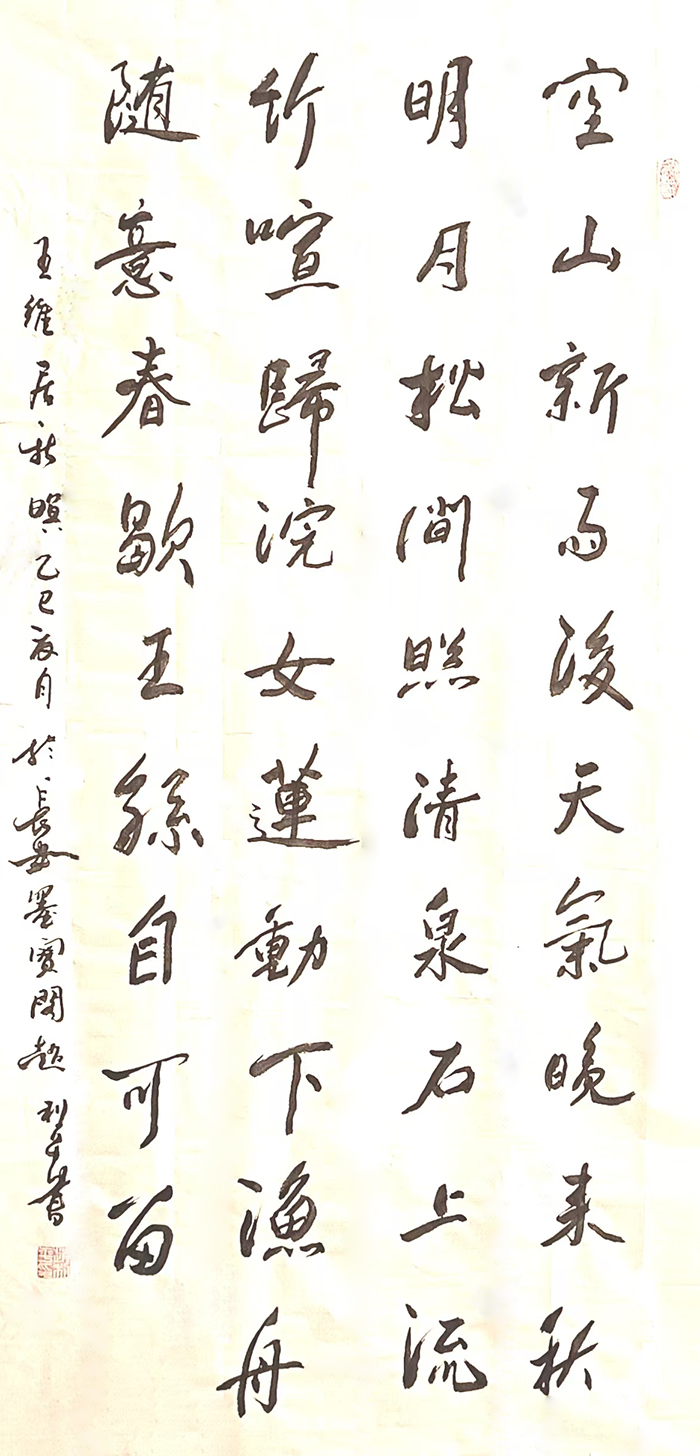 空山新雨後天氣晚来秋
明月松間照清泉石上流
竹喧歸浣女蓮動下漁舟
随意春歇王孫自可留
王維居秋暝乙巳月於長安墨寶閣趙利書